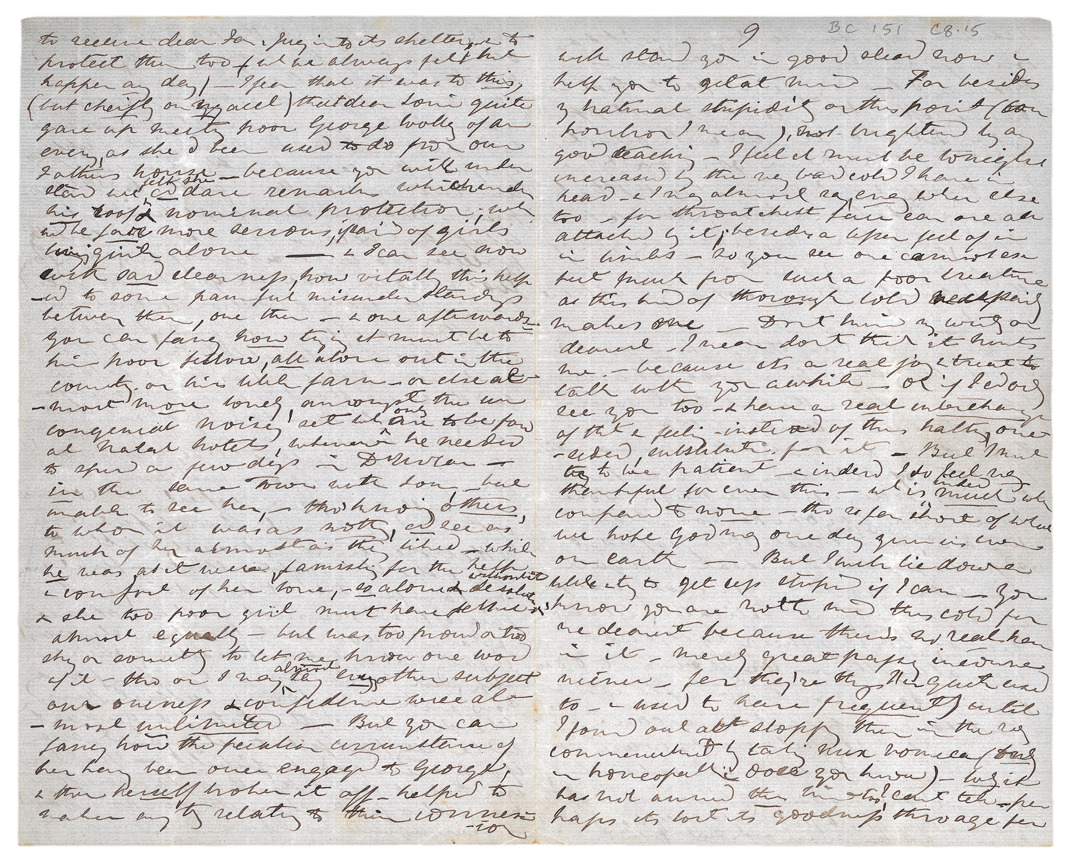 to receive dear Ian. Jury into its shelter, & to
protect them two (wh we always felt might
happen any day) — I fear that it was to this,
(but chiefly on my accct) that dear Louie quite
gave up meeting poor George Wolley of an
eveng, as she'd been used to do from our
Father's house — because you will under
stand we felt she dare remark whilst under
his roof & nominal protection; wh
wd be far more serious, said of girls
living quite alone — & I can see now
with sad clearness, how vitally this help
-ed to some painful misunderstandings
between them, one then — & one afterwards —
You can fancy how trying it must be to
him poor fellow, all alone out in the
country on his little farm — or else al
-most more lonely, amongst the un
congenial noises, set wh are only to be found
at Natal hotels, whenever he needed
to spend a few days in D'Urban —
in the same town with Lou, — but
unable to see her, — tho' knowing others,
to whom it was as nothg, cd see as
much of her almost as they liked — while
he was as it were, famishing for the help
& comfort of her love, — so alone & desolate without it
& she too poor girl must have felt it
almost equally — but was too proud or too
shy or somethg to let me know one word
of it — tho' on I may say almost every other subject
our oneness & confidence were al
-most unlimited — But you can
fancy how the peculiar circumstance of
her havg been once engaged to George,
& then herself broken it off — helped to
make anythg relating to their connex-
-ion
9 BC 151 C8.15
will stand you in good stead now &
help you to get at mine — For besides
my natural stupidity on this point (
I mean), not brightened by any
good teaching — I feel it must be tonight
increased by the very bad cold I have in
head — & I may almost say every where else
too — for throat chest face ear are all
attacked by it, besides a gen
in limbs — so you see one cannot ex
pect much from such a poor creature
as this kind of thorough cold
makes one — Don't mind my writing on
dearest — I mean don't think it hurts
me — because its a real joy & treat to
talk with you awhile — oh if I cd only
see you too — & have a real interchange
of tht & feelg — instead of this halting, one
-sided, substitute for it — But I must
try to be patient — & indeed I do feel very
thankful for even this — wh is indeed much wh
compared to none — tho' so far short of what
we hope God may one day give us even
on earth — But I must lie down a
little & try to get up sleeping if I can — You
know you are not to mind this cold for
me dearest because there's no real harm
in it — merely great passing inconve
nience — for they're things I'm quite used
to — & used to have frequently until
I found out abt stopping them in the very
commencement by takg Nux vomica (
in homeopathic doses you know) — why it
has not answd this time I can't tell — per
haps its lost its goodness through age for